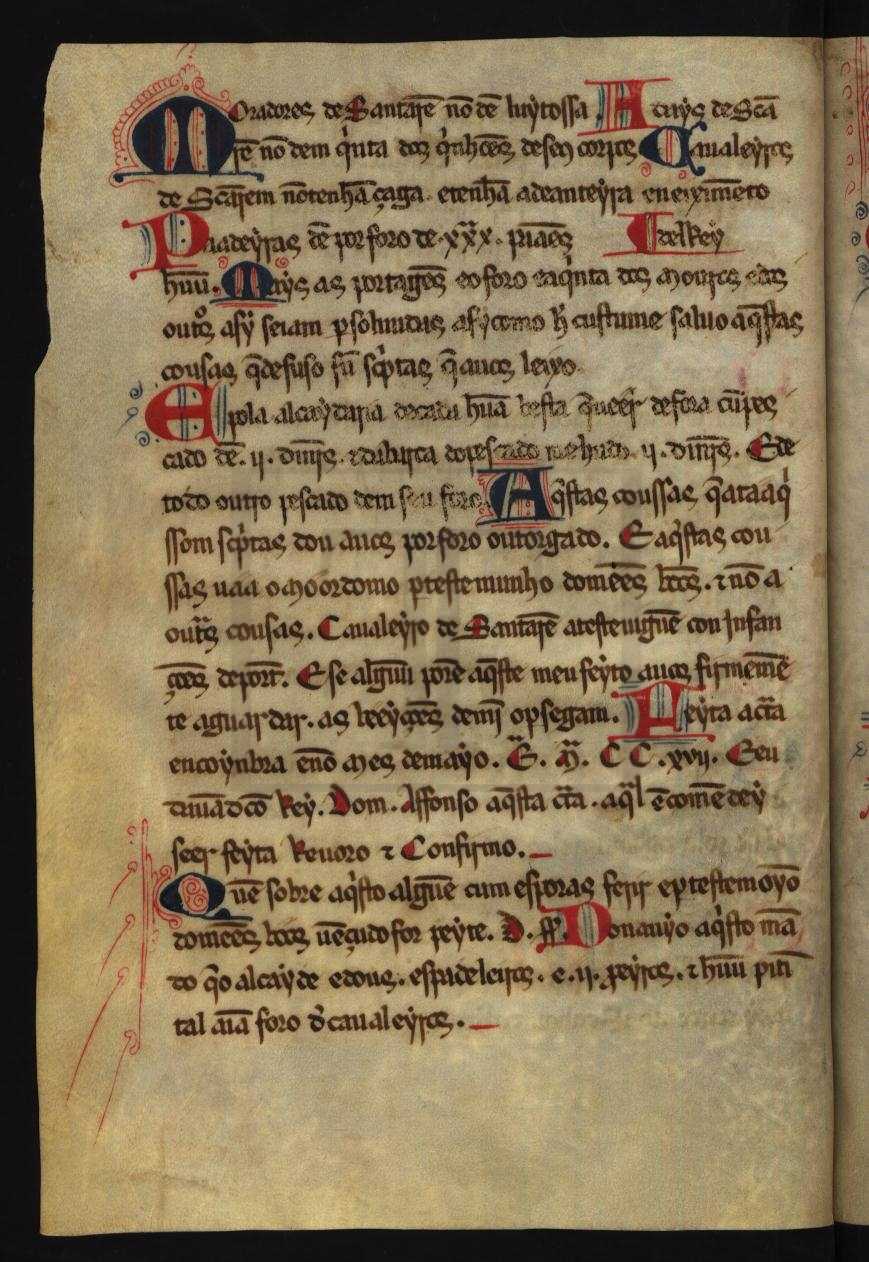 Moradores de Santarē nō dē luytossa Atuys de Scā
rē nō dem q̇nta dos q̇nhoēs de seꝯ corpos Caualeyros
de Scārem nō tenhā çaga. e tenhā a deanteyra en eiximēto
Paadeyras dē por foro de. xxx. pāaes del Rey
huū. Mays as portagēs e o foro e a q̇nta dos mouros e dos
outos asy seiam ꝑsoluudas asy como h̄ custume saluo aq̄stas
cousas q̄ de suso sū sc̄ptas q̄ auos leixo
E pola alcaydaria de huā besta q̄ ueer̄ de fora cū pes
cado dē. ii. dinr̄s. 
todo outro pescado dem seu foro Aq̄stas coussas q̄ ata aq̇
ssom sc̄ptas dou auos por foro outorgado. E aq̄stas cou
ssas uaa o moordomo ꝑ testemunho domeēs boōs. ⁊ nō a
outas cousas. Caualeyro de Santarē a testeviguē con Infan
çoēs de port̄. E se alguū porē aqste meu feyto auos firmemē
te aguardar. as beeyçoēs de mī o ꝑsegam. Feyta a cāta
en coynbra eno mes de mayo. E. M. CC. xvii. E eu
Rey. Dom. Affonso aq̄sta cāta. aq̄l ēcomēdey
seer feyta Reuoro ⁊ Confirmo.
Quē sobre aq̄sto alguē cum esporas ferir e ꝑ testemoyō
domeēs boōs uēçudo for peyte. D. ss̄. Donauyo aq̄sto mā
do q̄ o alcayde e dous. espadeleiros. e. ii. ꝓeyros. ⁊ huū pitī
tal aiā foro d̄ caualeyros.